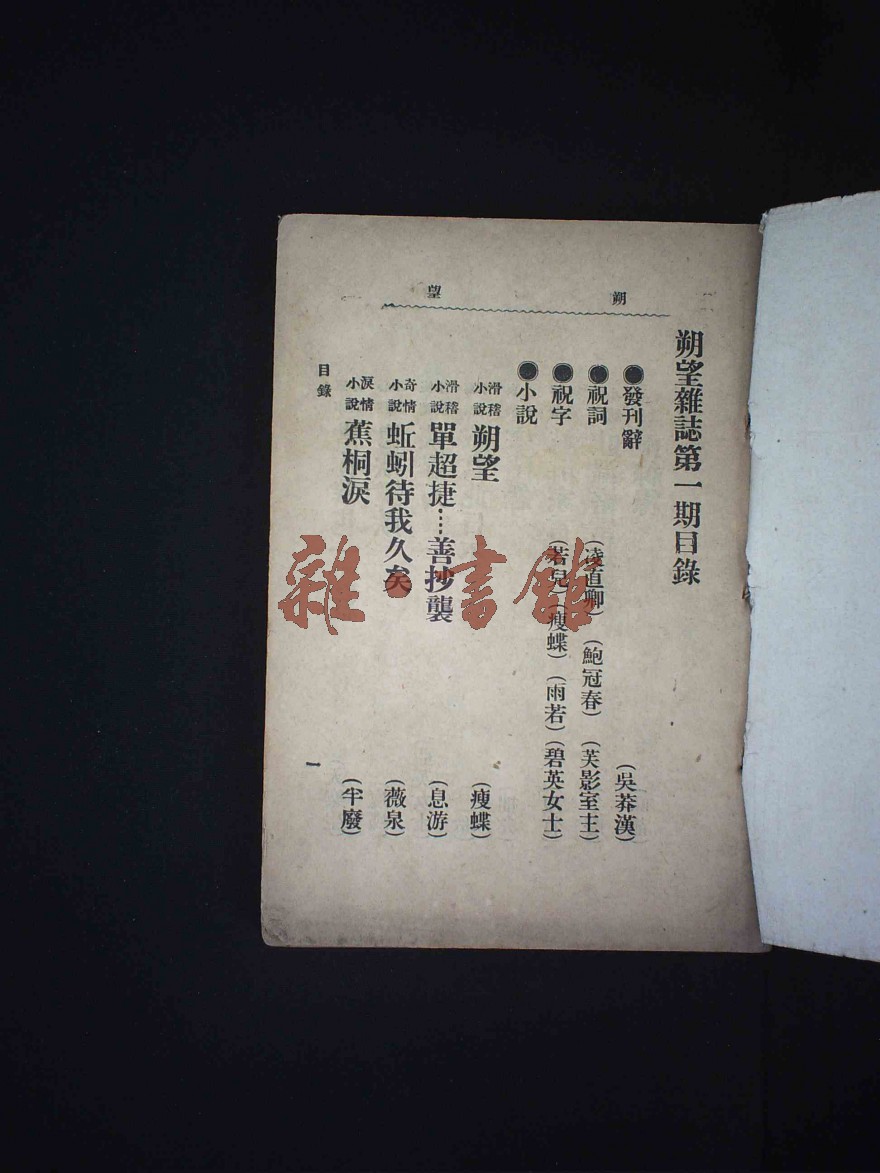 朔望
朔望雜誌第一期目錄
●發刊辭（吳莽漢）
●祝詞（凌直卿）（鮑冠春）（芙影室主）
●祝字（若兒）（瘦蝶）（雨若）（碧英女士）
●小說
滑稽小說 朔望（瘦蝶）
滑稽小說 單超捷…善抄襲（息游）
奇情小說 蚯蚓待我久矣（薇泉）
淚情小說 蕉桐淚（半廢）
目錄 一
雜·書館